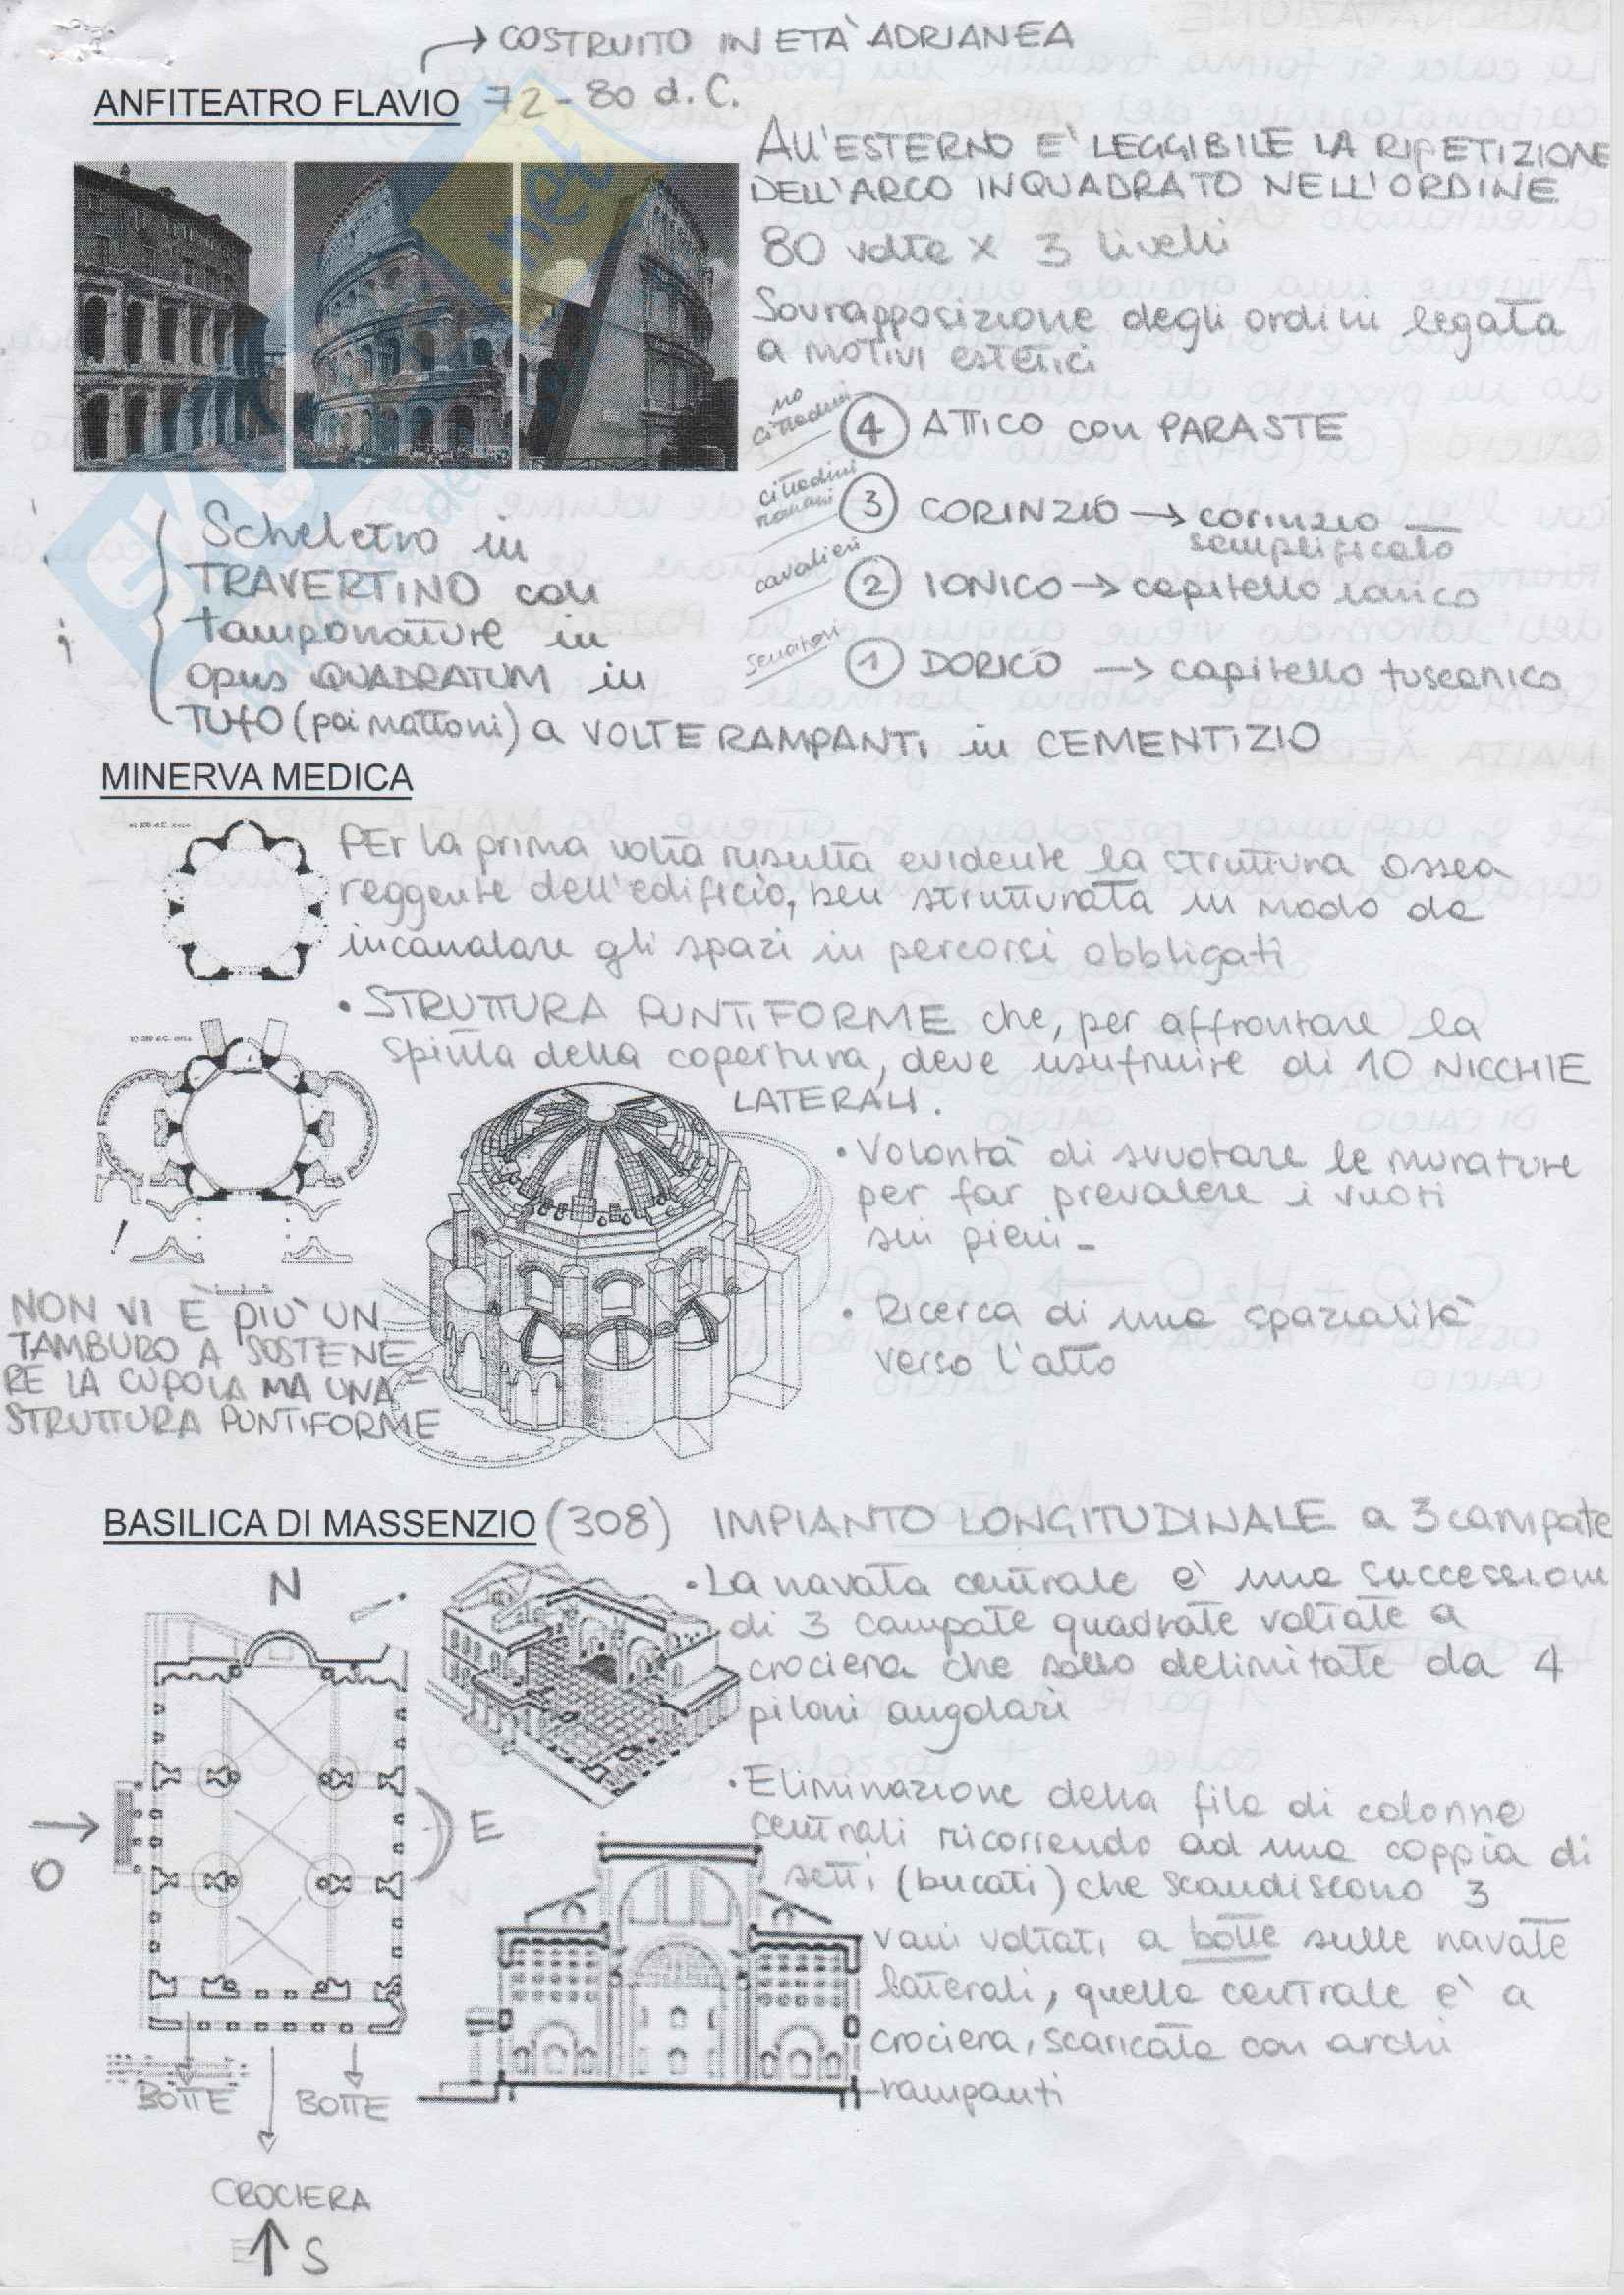 → COSTRUITO IN ETÀ ADRIANEA
ANFITEATRO FLAVIO 72-80 d.C.
All'ESTERNO E' LEGGIBILE LA RIPETIZIONE
DELL'ARCO INQUADRATO NELL'ORDINE
80 volte x 3 livelli
Sovrapposizione degli ordini legata
a motivi estetici
no cittadini ④ ATTICO con PARASTE
cittadini romani ③ CORINZIO → corinzio
semplificato
cavalieri ② IONICO → capitello ionico
senatori ① DORICO → capitello tuscanico
Scheletro in
TRAVERTINO con
tamponature in
opus QUADRATUM in
TUFO (poi mattoni) a VOLTE RAMPANTI in CEMENTIZIO
MINERVA MEDICA
PEr la prima volta risulta evidente la struttura ossea
reggente dell'edificio, ben strutturata in modo da
incanalare gli spazi in percorsi obbligati
• STRUTTURA PUNTIFORME che, per affrontare la
spinta della copertura, deve usufruire di 10 NICCHIE
LATERALI.
• Volontà di svuotare le murature
per far prevalere i vuoti
sui pieni-
• Ricerca di una spazialità
verso l'alto
NON VI È PIÙ UN
TAMBURO A SOSTENE
RE LA CUPOLA MA UNA
STRUTTURA PUNTIFORME
BASILICA DI MASSENZIO (308) IMPIANTO LONGITUDINALE a 3 campate
• La navata centrale è una successione
di 3 campate quadrate voltate a
crociera che sono delimitate da 4
piloni angolari
• Eliminazione della fila di colonne
centrali ricorrendo ad una coppia di
setti (bucati) che scandiscono 3
vani voltati a botte sulle navate
laterali, quella centrale e' a
crociera, scaricata con archi
rampanti
N
E
O
BOTTE BOTTE
CROCIERA
S